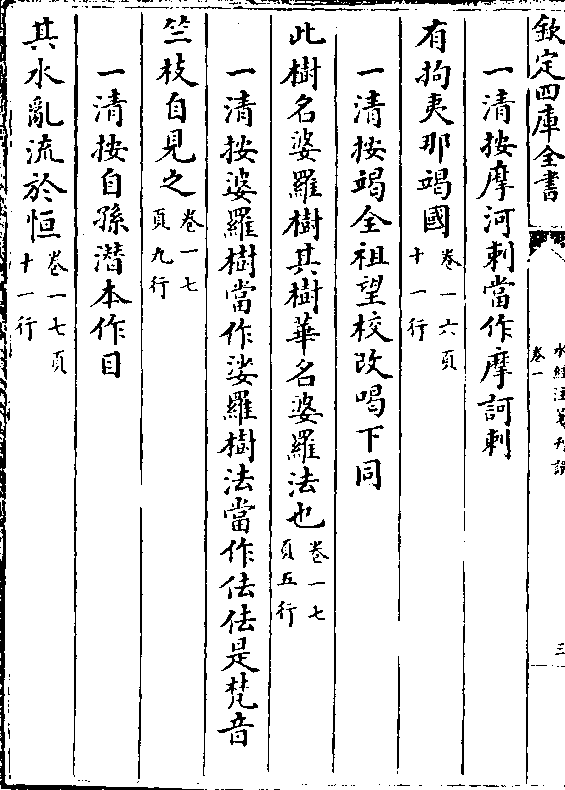 欽定四庫全書
水經注箋刊誤
卷一
三
一清按摩河刺當作摩訶刺
有拘夷那竭國卷一六頁十一行
一清按竭全祖望校改喝下同
此樹名娑羅樹其樹華名娑羅法也卷一七頁五行
一清按娑羅樹當作娑羅樹法當作佉佉是梵音
竺枝自見之卷一七頁九行
一清按自孫潛本作目
其水亂流於恒卷一七頁十一行